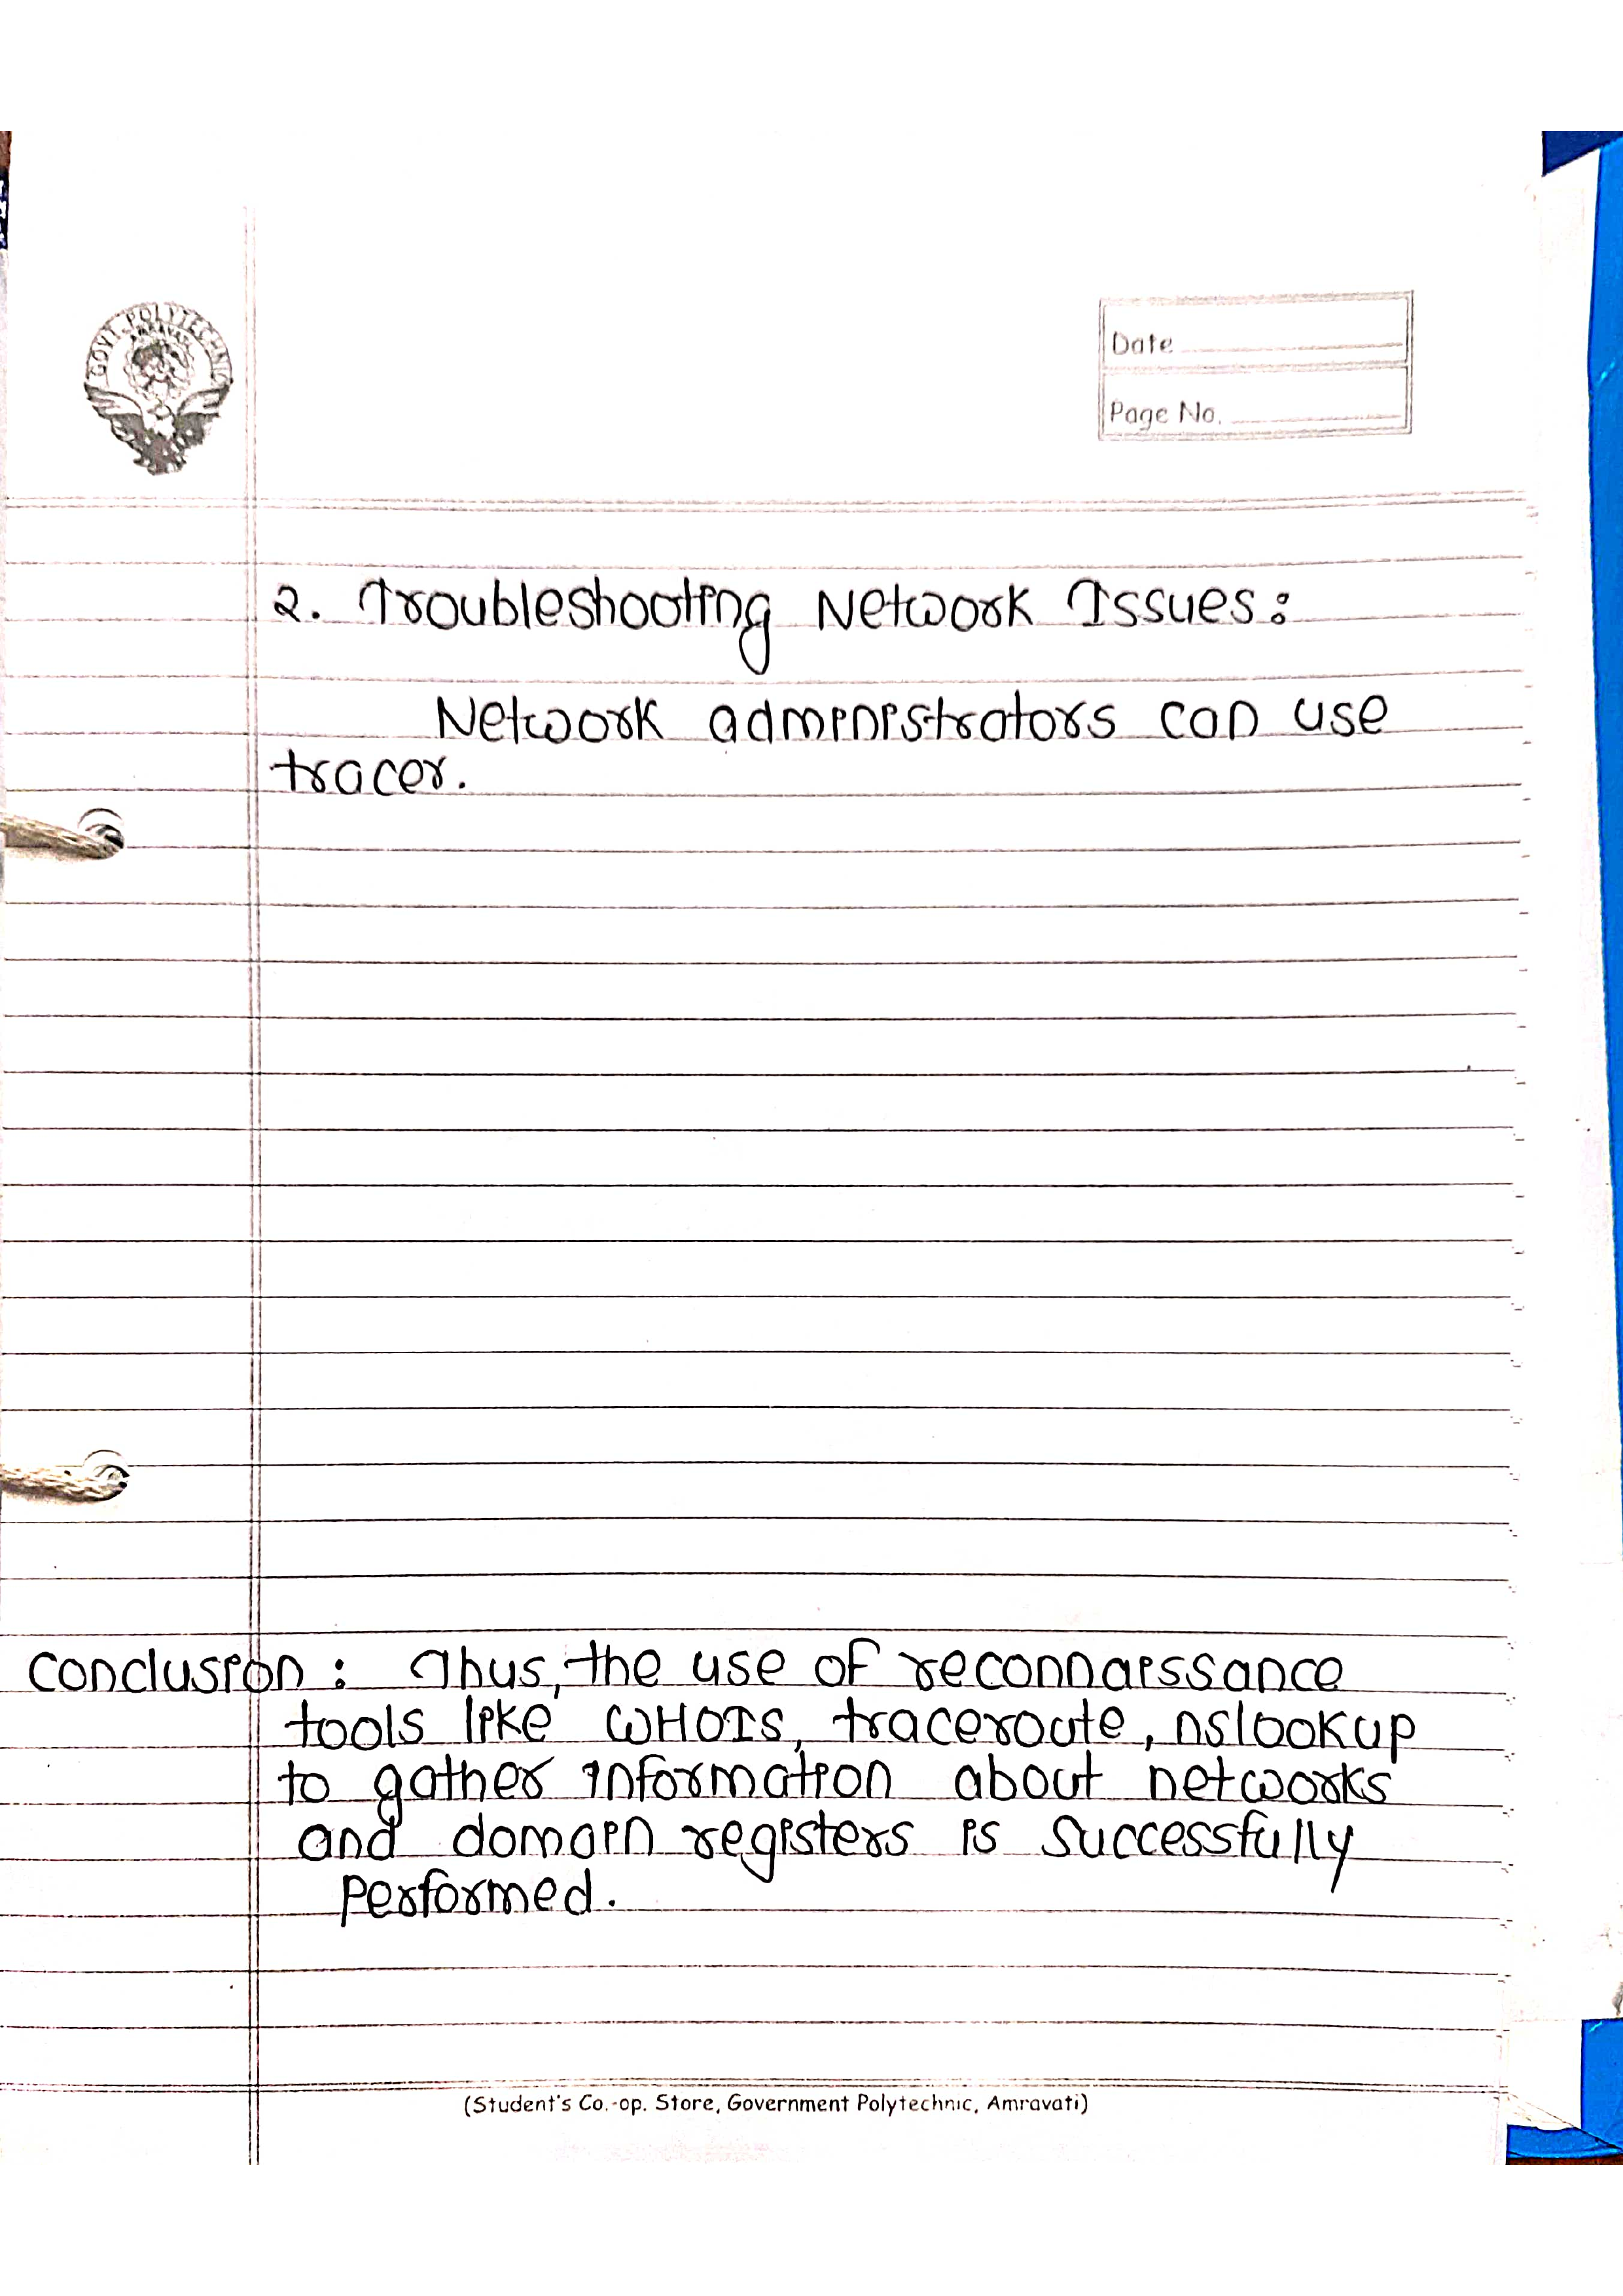 GOVT. POLYTECHNIC
AMRAVATI
Date
Page No.
2. Troubleshooting Network Issues:
Network administrators can use
tracer.
Conclusion : Thus, the use of reconnaissance
tools like WHOIS, traceroute, nslookup
to gather information about networks
and domain registers is successfully
performed.
(Student's Co.-op. Store, Government Polytechnic, Amravati)